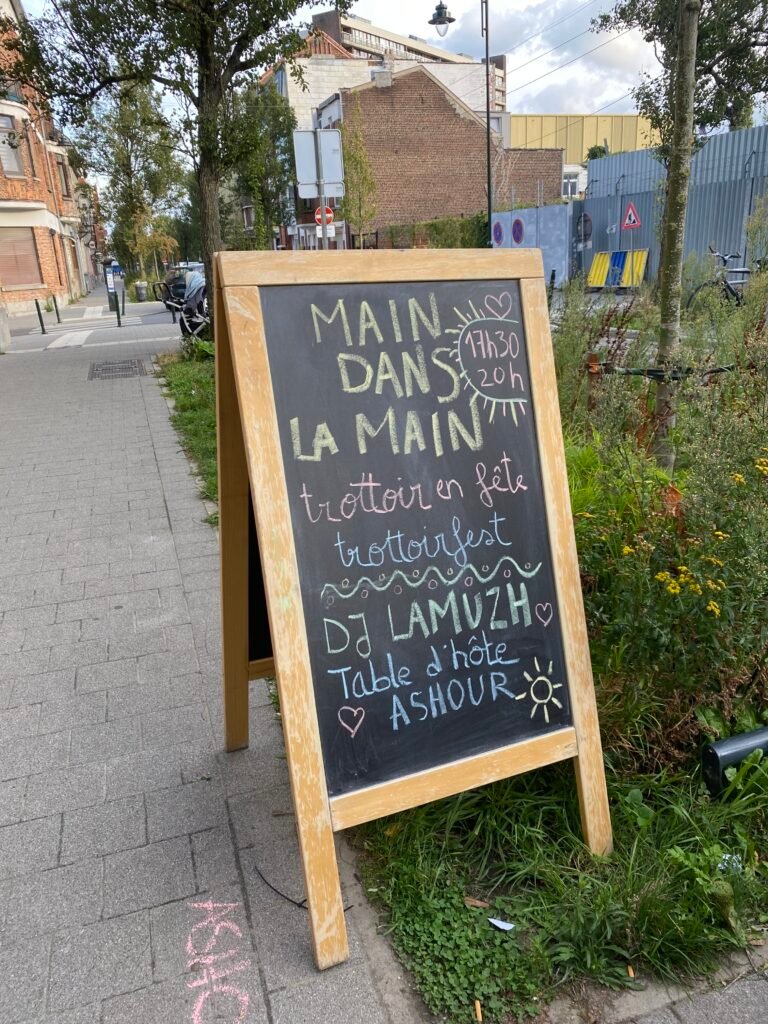 MAIN
DANS
LA MAIN
17h30
20h
trottoir en fête
trottoirfest
DJ LAMUZH
Table d'hôte
ASHOUR